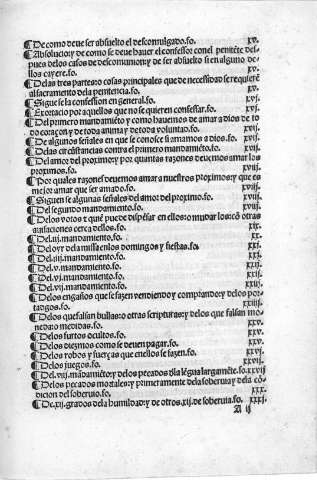 ¶De como deue ser absuelto el descomulgado.fo. xv.
¶Absolucion:y de como se deue hauer el confessor con el penitēte des
pues delos casos de descomunion:y de ser absuelto si en alguno de
llos cayere.fo. xv.
¶Delas tres partes:o cosas principales que de necessidad se requierē
al sacramento dela penitencia.fo. xv.
¶Sigue se la confession en general.fo. xvj.
¶Exortacio por aquellos que no se quieren confessar.fo. xvj.
¶Del primero mandamiēto:y como hauemos de amar a dios de to
do coraçon:y de toda anima:y de toda voluntad.fo. xvj.
¶De algunos señales en que se conosce si amamos a dios.fo. xvij.
¶Delas circūstancias contra el primero mandamiēto.fo. xvij.
¶Del amor del proximo:y por quantas razones deuemos amar los
proximos.fo. xvij.
¶Por quales razones deuemos amar a nuestros proximos:y que es
mejor amar que ser amado.fo. xviij.
¶Siguen se algunas señales del amor del proximo.fo. xviij.
¶Del segundo mandamiento.fo. xviij.
¶Delos votos:y que puede dispēsar en ellos:o mudar los:cō otras
auisaciones cerca dellos.fo. xix.
¶Del.iij.mandamiento.fo. xx.
¶Del oyr dela missa en los domingos y fiestas.fo. xxj.
¶Del.iiij.mandamiento.fo. xxj.
¶Del.v.mandamiento.fo. xxij.
¶Del.vj.mandamiento.fo. xxij.
¶Del.vij.mandamiento.fo. xxiij.
¶Delos engaños que se fazen vendiendo y comprando:y delos por
tadgos.fo. xxiij.
¶Delos que falsan bullas:o otras scripturas:y delos que falsan mo
neda:o medidas.fo. xxv.
¶Delos furtos ocultos.fo. xxv.
¶Delos diezmos como se deuen pagar.fo. xxv.
¶Delos robos y fuerças que en ellos se fazen.fo. xxvj.
¶Delos juegos.fo. xxvij.
¶Del.viij.mādamiēto:y delos pecados dela lēgua largamēte.fo.xxvij
¶Delos pecados mortales:y primeramente dela soberuia:y dela cō
dicion del soberuio.fo. xxxj.
¶De.xij.grados dela humildad:y de otros.xij.de soberuia.fo. xxxj.
A ij